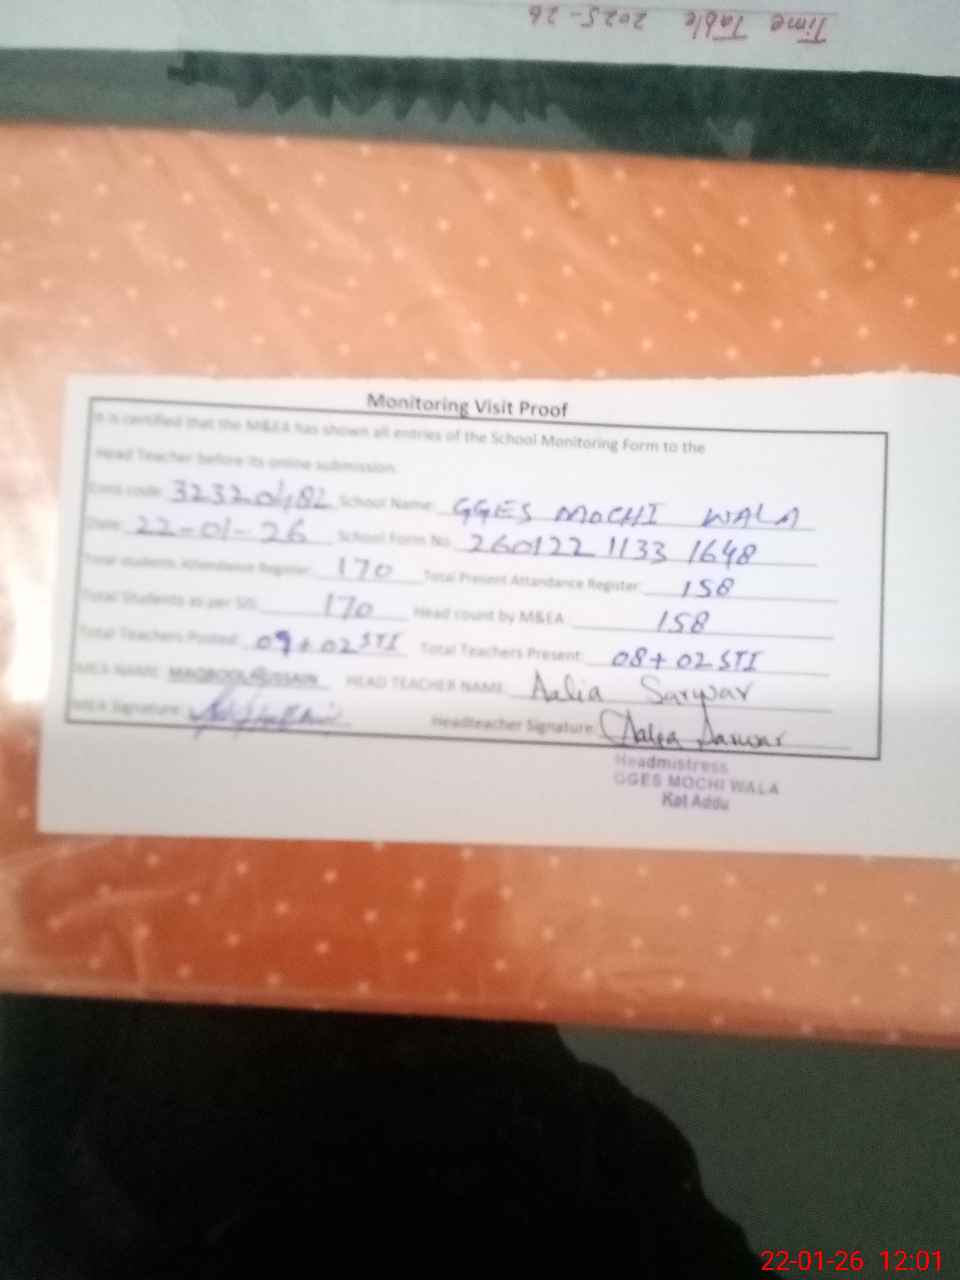 Time Table 2025-26
Monitoring Visit Proof
It is certified that the M&EA has shown all entries of the School Monitoring Form to the
Head Teacher before its online submission.
Emis code: 32320182 School Name: GGES MOCHI WALA
Date: 22-01-26 School Form No. 260122 1133 1648
Total students Attendance Register: 170 Total Present Attandance Register: 158
Total Students as per SIS: 170 Head count by M&EA: 158
Total Teachers Posted: 09+02 STI Total Teachers Present: 08+02 STI
MEA NAME: MAQBOOL HUSSAIN HEAD TEACHER NAME: Aalia Sarwar
MEA Signature: Headteacher Signature: Aalia Sarwar
Headmistress
GGES MOCHI WALA
Kot Addu
22-01-26 12:01